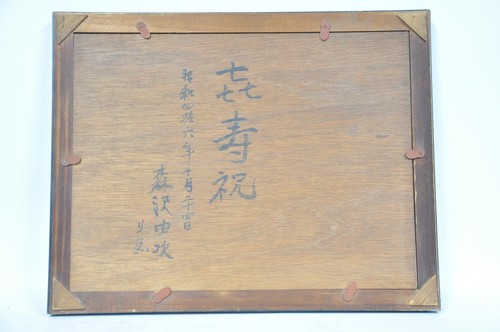 㐂寿祝
昭和四拾六年十月二十四日
森沢由次